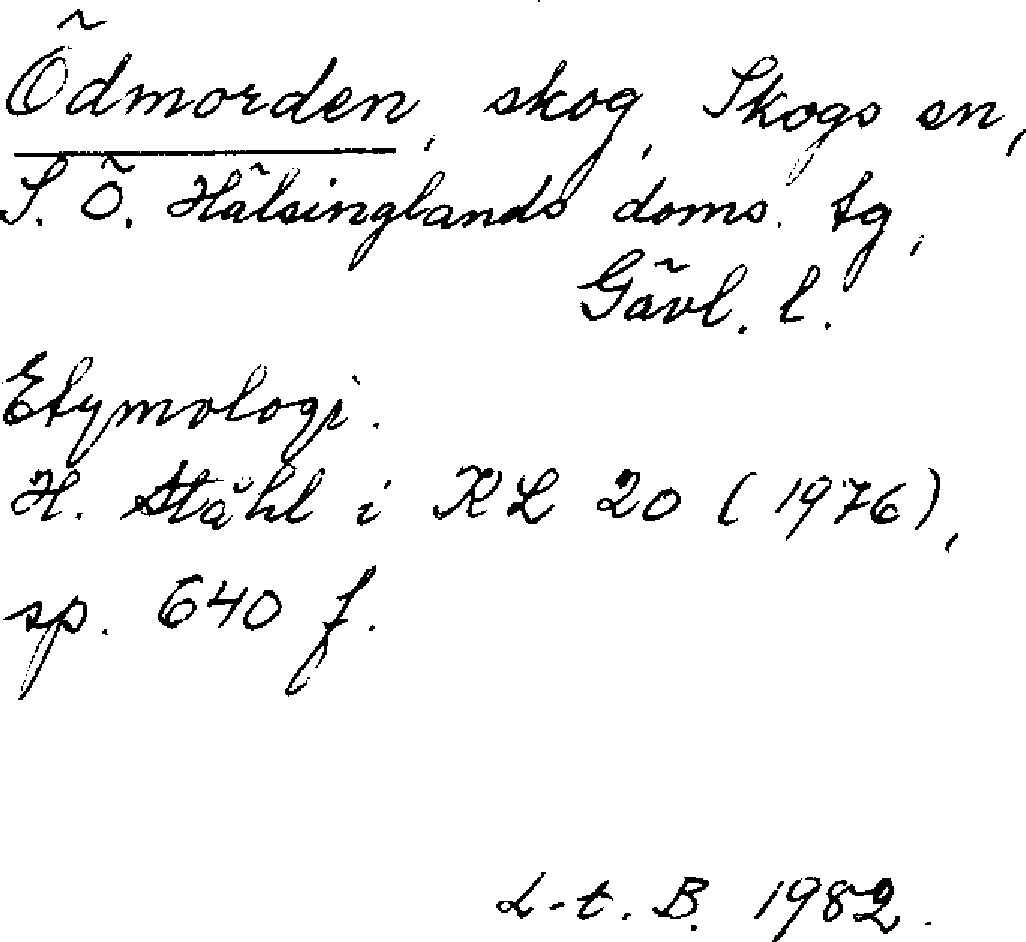 Ödmorden, skog, Skogs sn,
S. Ö. Hälsinglands doms. tg,
Gävl. l.
Etymologi.
H. Ståhl i KL 20 (1976),
sp. 640 f.
L-t. B. 1982.